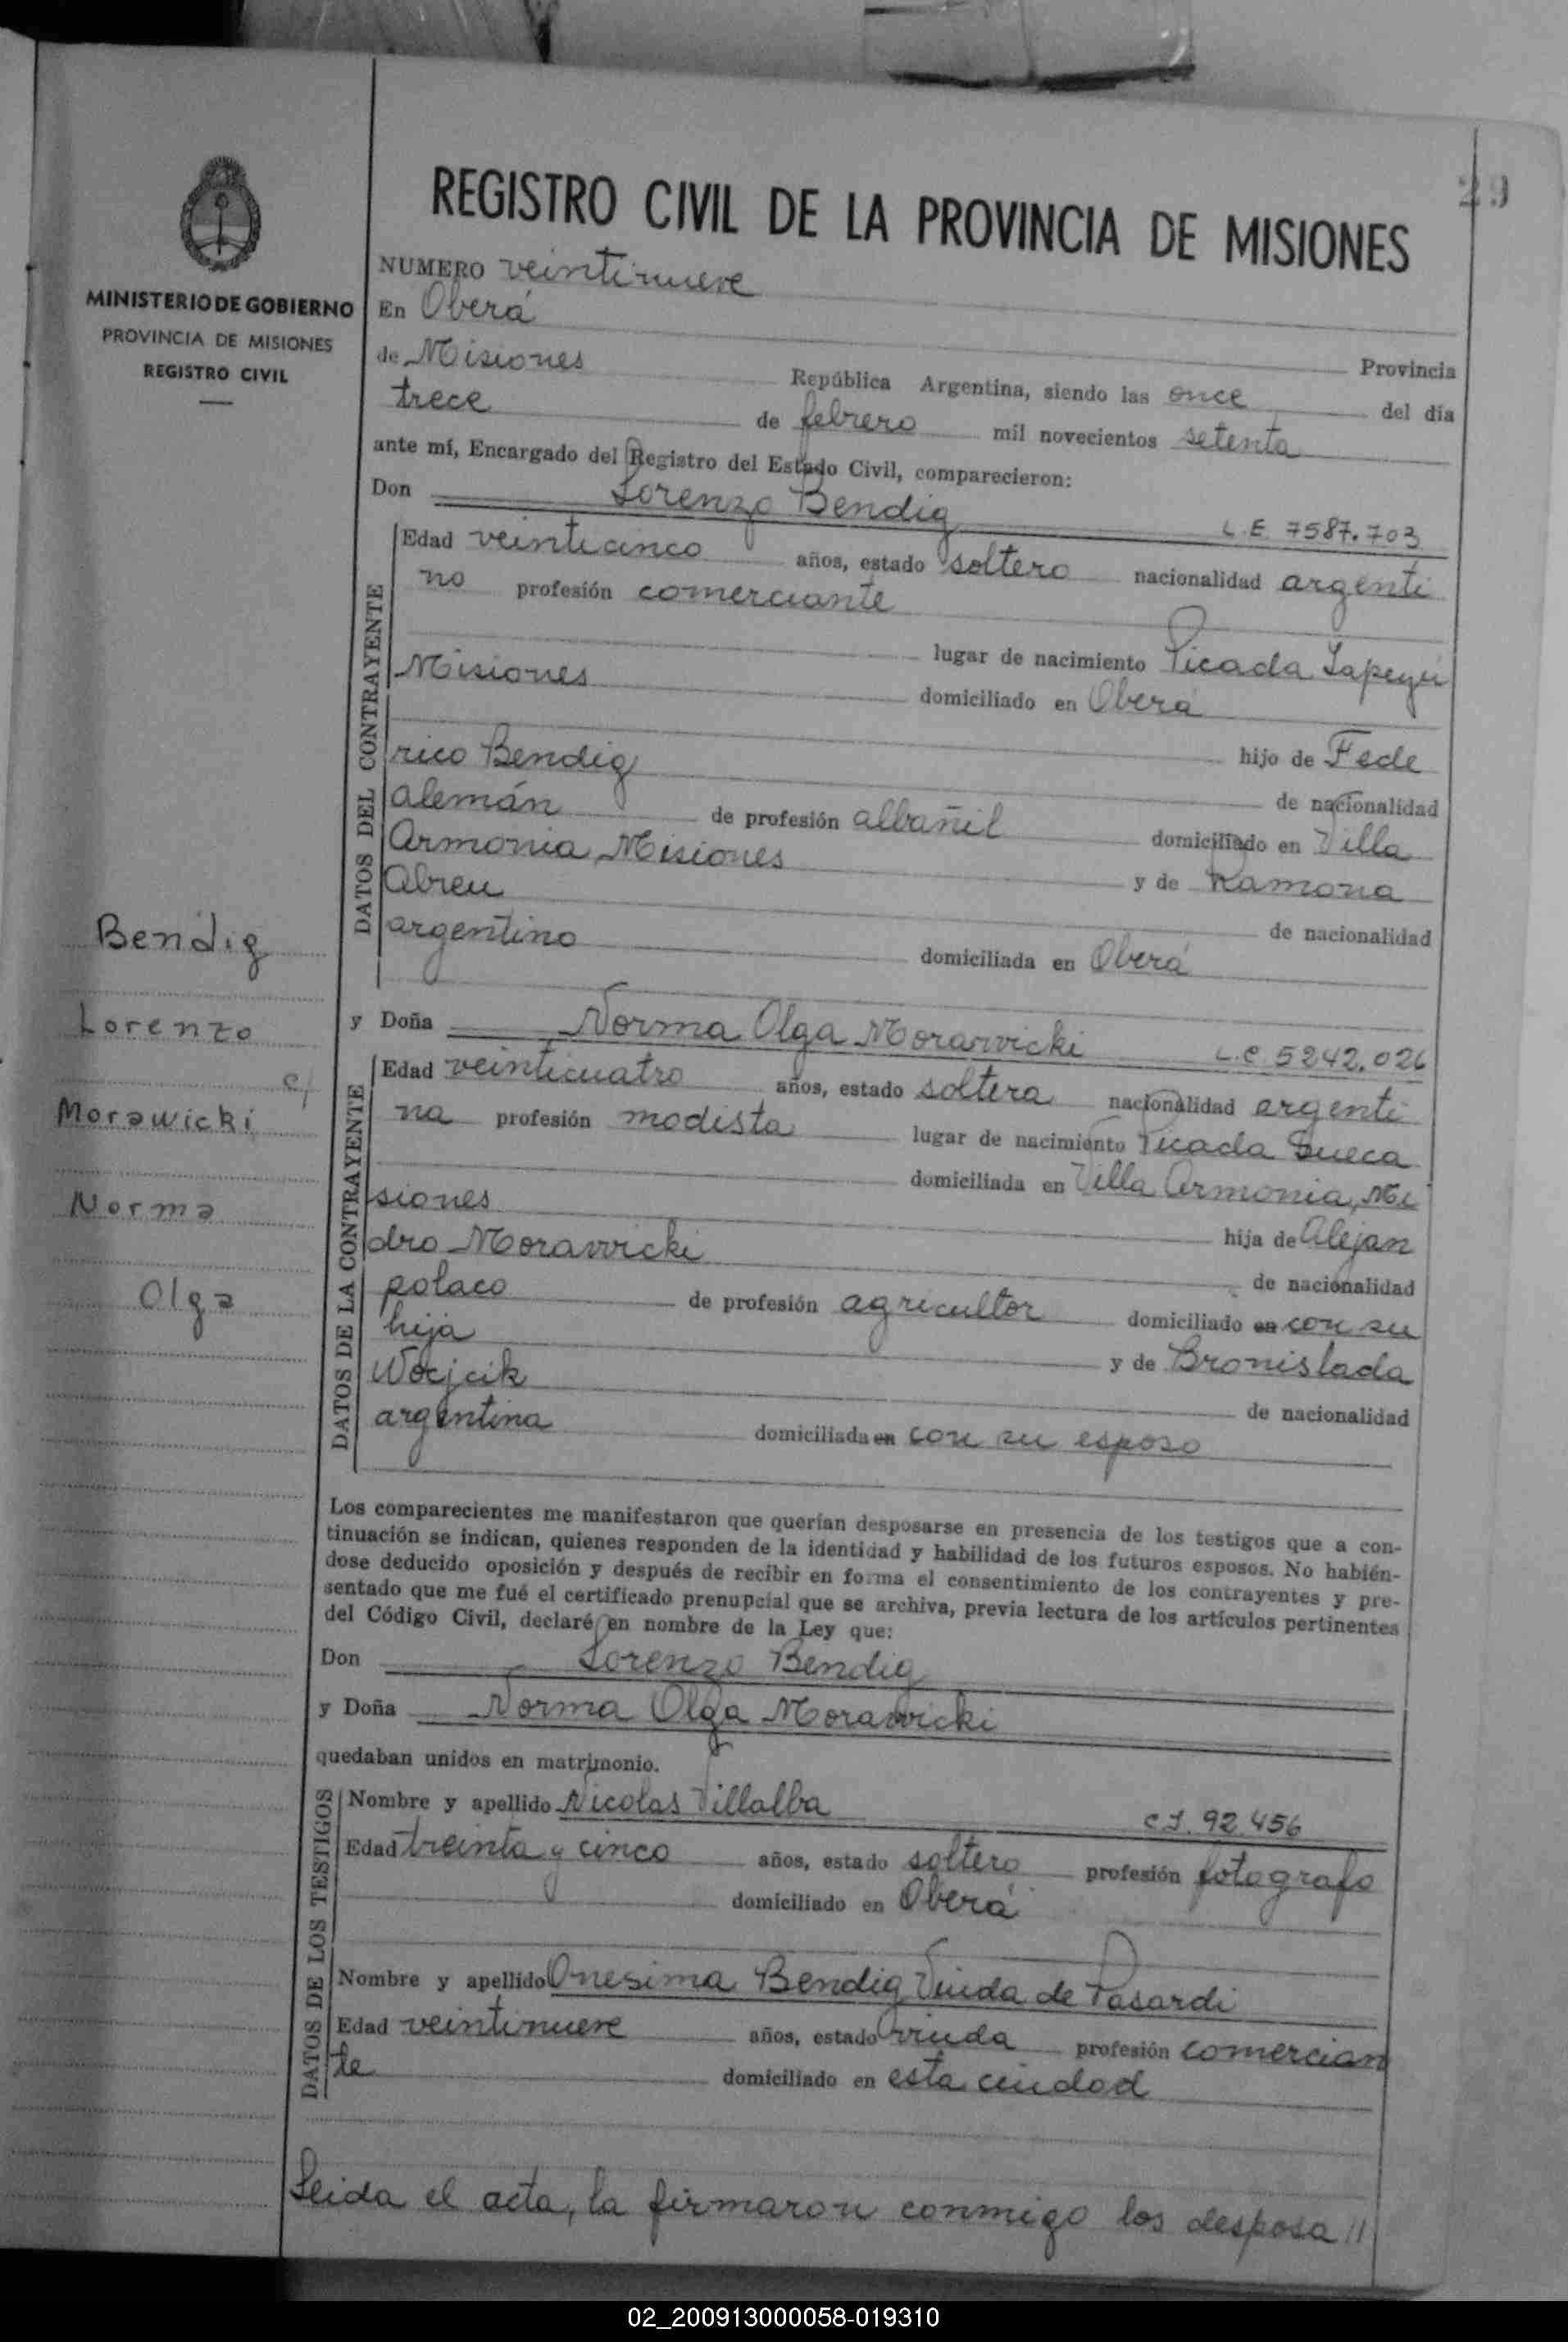 29
REGISTRO CIVIL DE LA PROVINCIA DE MISIONES
MINISTERIO DE GOBIERNO
PROVINCIA DE MISIONES
REGISTRO CIVIL
NUMERO veintinueve
En Oberá Provincia
de Misiones República Argentina, siendo las once del día
trece de febrero mil novecientos setenta
ante mí, Encargado del Registro del Estado Civil, comparecieron:
Don Lorenzo Bendig L.E. 7587.703
DATOS DEL CONTRAYENTE
Edad veinticinco años, estado soltero nacionalidad argenti
no profesión comerciante
lugar de nacimiento Picada Yapeyú
Misiones domiciliado en Oberá
hijo de Fede
rico Bendig de nacionalidad
alemán de profesión albañil domiciliado en Villa
Armonia, Misiones y de Ramona
Abreu de nacionalidad
argentino domiciliada en Oberá
Bendig
Lorenzo
c/
Morawicki
Norma
Olga
y Doña Norma Olga Morawicki L.C. 5242.026
DATOS DE LA CONTRAYENTE
Edad veinticuatro años, estado soltera nacionalidad argenti
na profesión modista lugar de nacimiento Picada Sueca
domiciliada en Villa Armonia, Mi
siones hija de Alejan
dro Morawicki de nacionalidad
polaco de profesión agricultor domiciliado en con su
hija y de Bronislada
Wocjcik de nacionalidad
argentina domiciliada en con su esposo
Los comparecientes me manifestaron que querían desposarse en presencia de los testigos que a con-
tinuación se indican, quienes responden de la identidad y habilidad de los futuros esposos. No habién-
dose deducido oposición y después de recibir en forma el consentimiento de los contrayentes y pre-
sentado que me fué el certificado prenupcial que se archiva, previa lectura de los artículos pertinentes
del Código Civil, declaré en nombre de la Ley que:
Don Lorenzo Bendig
y Doña Norma Olga Morawicki
quedaban unidos en matrimonio.
DATOS DE LOS TESTIGOS
Nombre y apellido Nicolas Villalba C.I. 92.456
Edad treinta y cinco años, estado soltero profesión fotografo
domiciliado en Oberá
Nombre y apellido Onesima Bendig Viuda de Pasardi
Edad veintinueve años, estado viuda profesión comercian
te domiciliado en esta ciudad
Leida el acta, la firmaron conmigo los desposa //
02_200913000058-019310